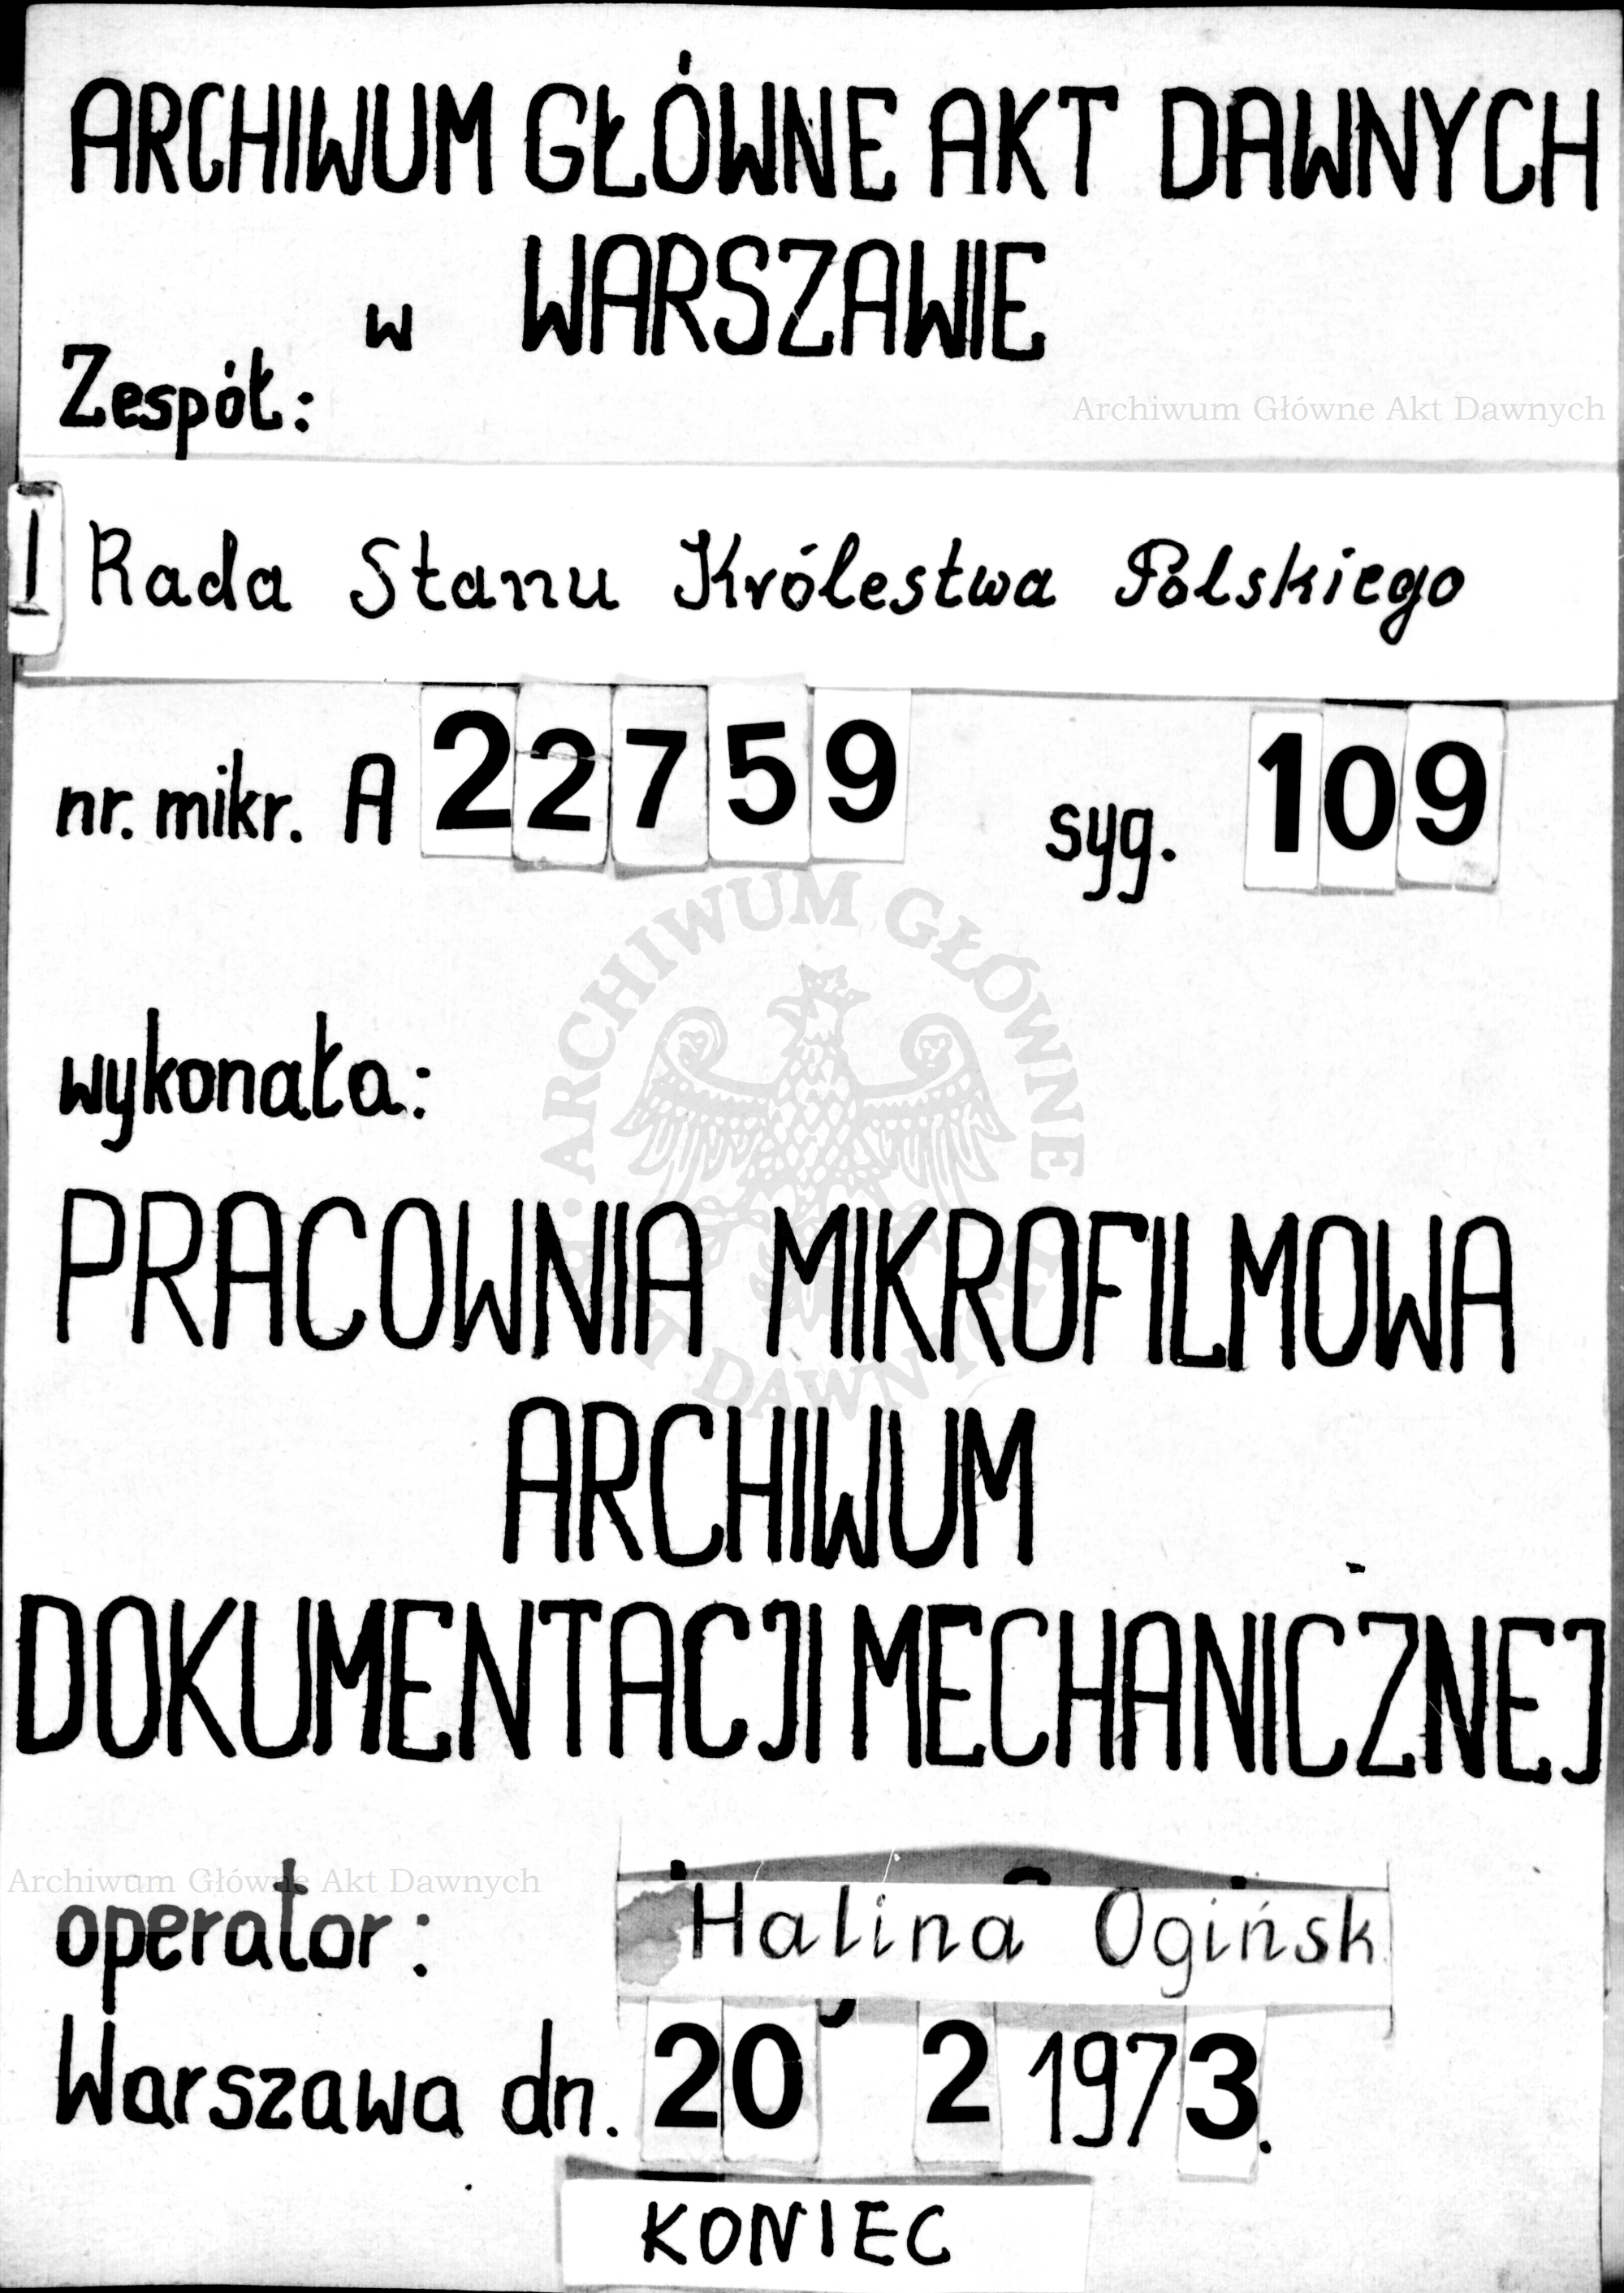 ARCHIWUM GŁÓWNE AKT DAWNYCH
w WARSZAWIE
Zespół:
Archiwum Główne Akt Dawnych
I Rada Stanu Królestwa Polskiego
nr. mikr. A 22759 syg. 109
ARCHIWUM GŁÓWNE AKT DAWNYCH
wykonała:
PRACOWNIA MIKROFILMOWA
ARCHIWUM
DOKUMENTACJI MECHANICZNEJ
Archiwum Główne Akt Dawnych
operator: Halina Ogińsk
Warszawa dn. 20 2 1973.
KONIEC